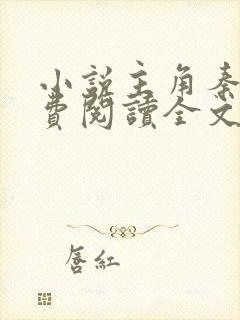 小說主角秦
費閱讀全文
唇紅